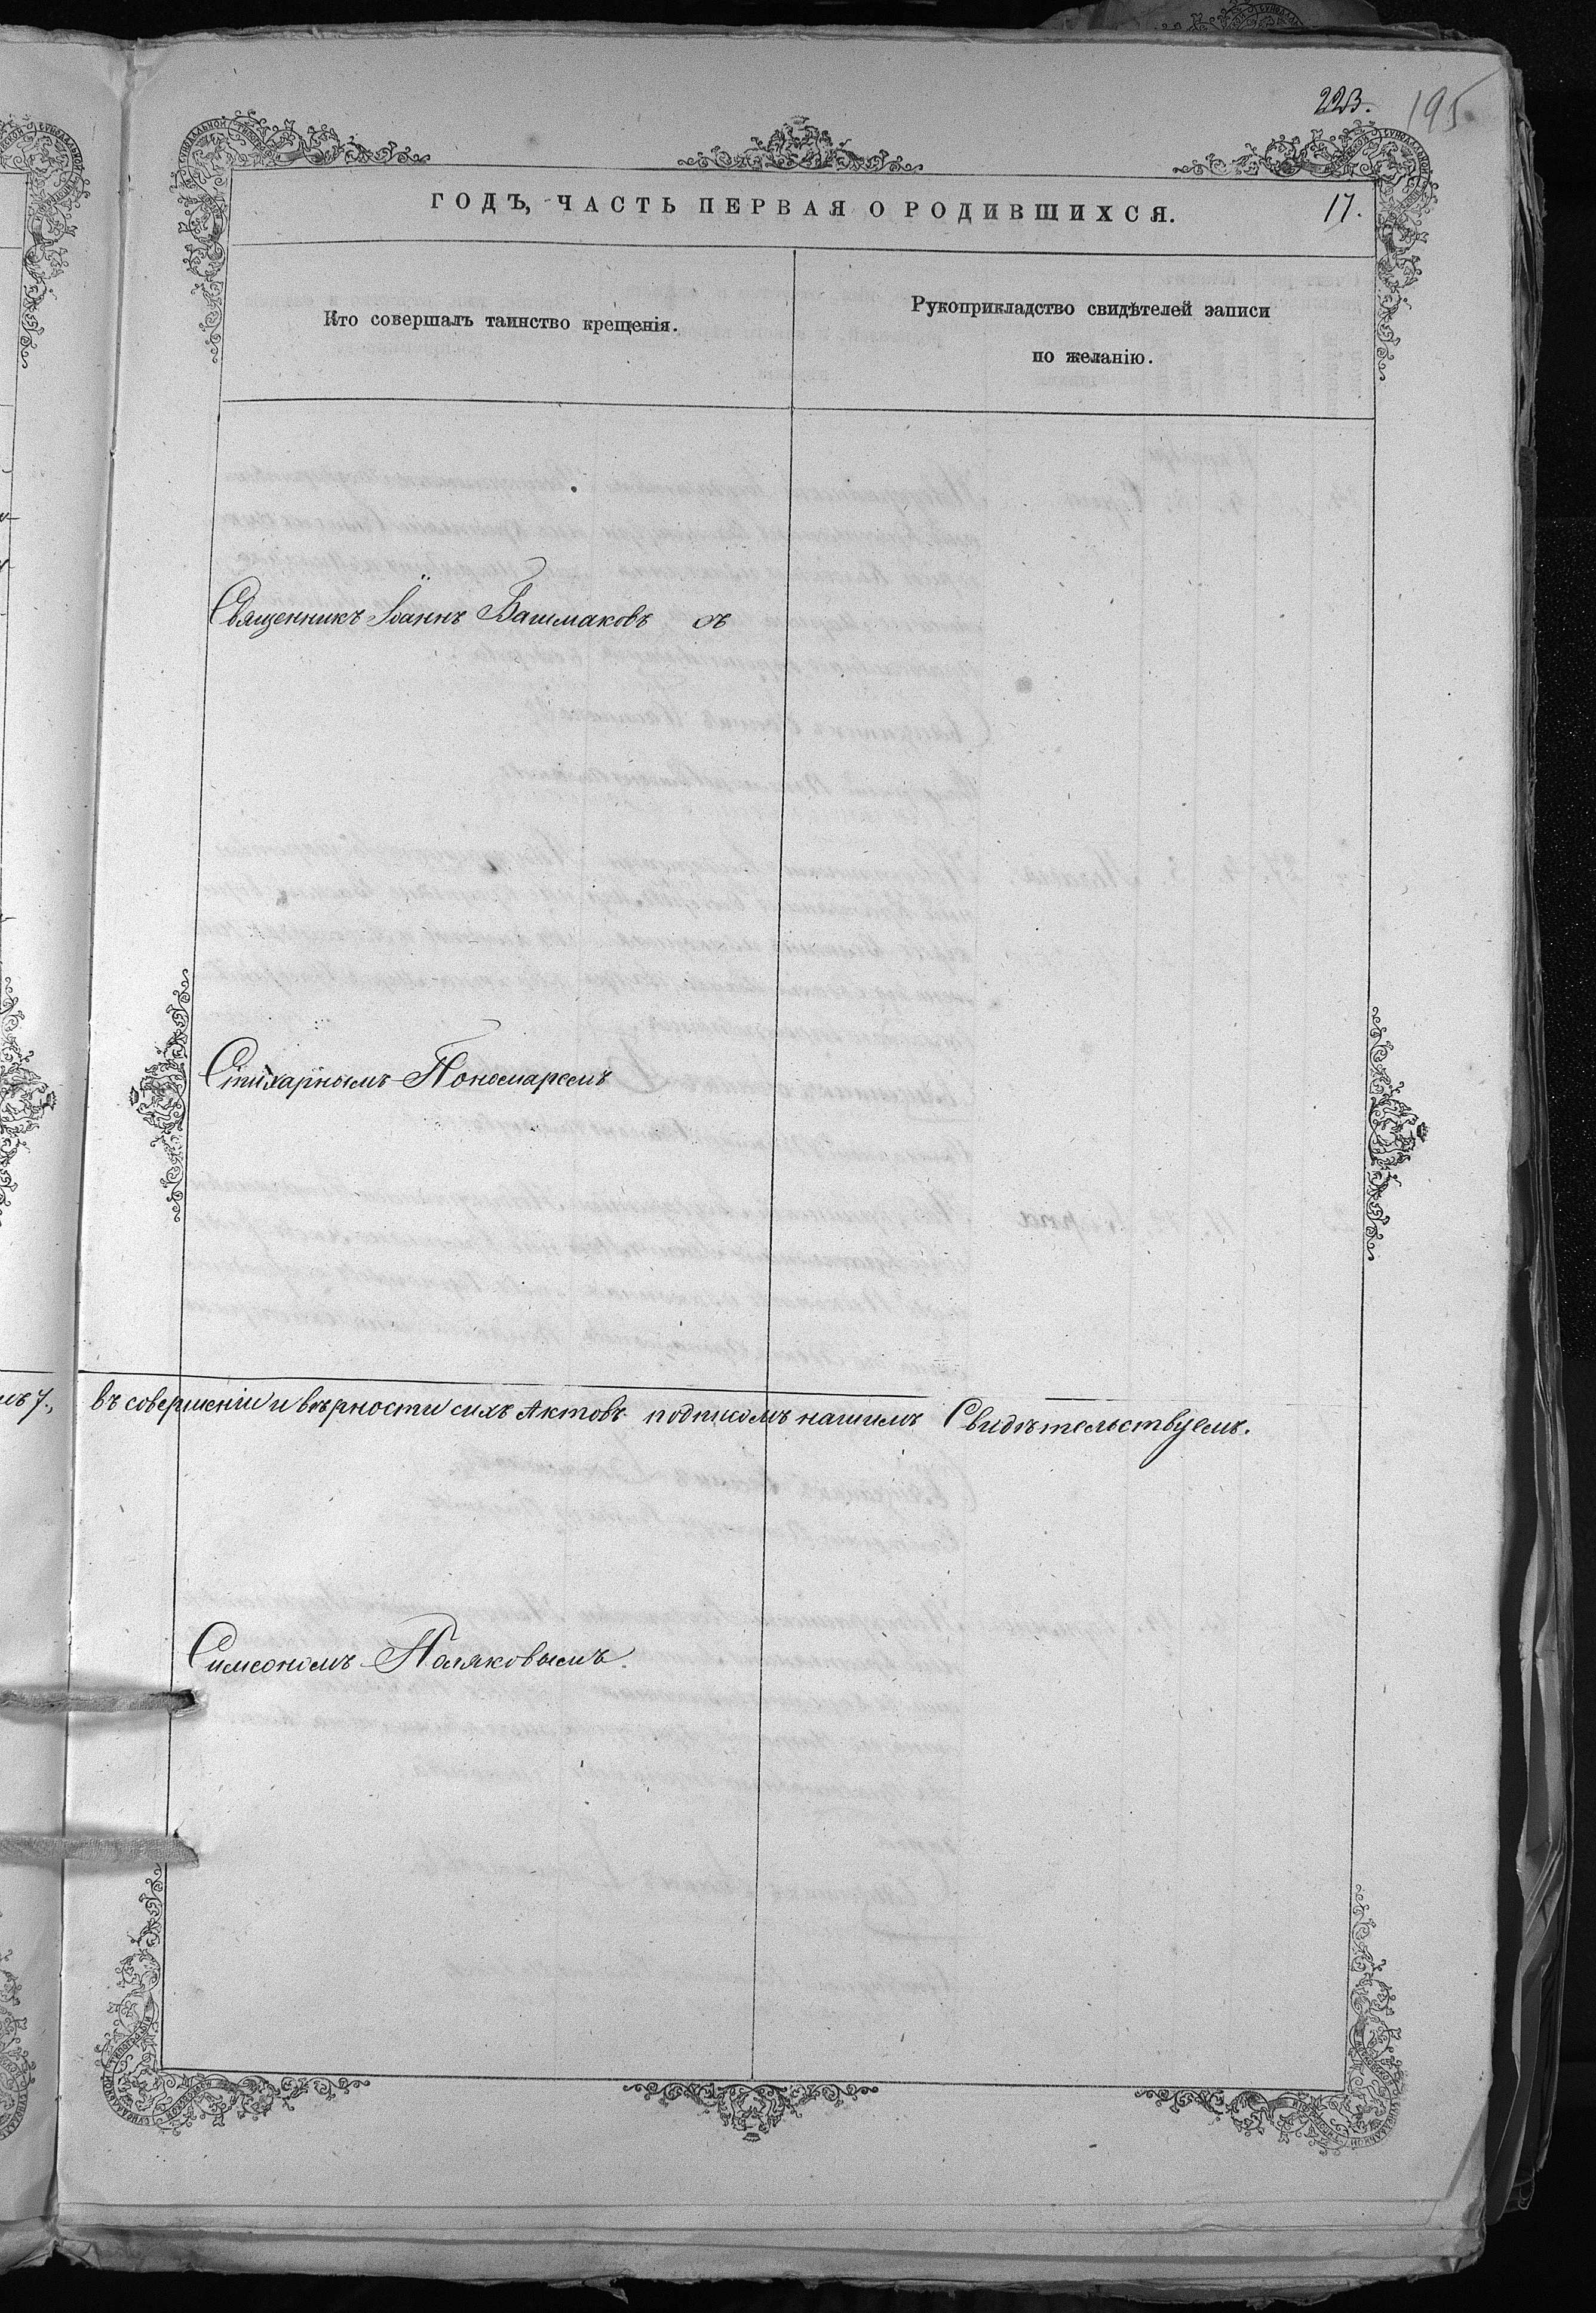 223. 195
ГОДЪ, ЧАСТЬ ПЕРВАЯ О РОДИВШИХСЯ. 17.
Кто совершалъ таинство крещенія.
Рукоприкладство свидѣтелей записи
по желанію.
Священникъ Іоаннъ Башмаковъ съ
Стихарнымъ Пономаремъ
въ совершеніи и вѣрности сихъ Актовъ подписомъ нашимъ Свидѣтельствуемъ.
Симеономъ Поляковымъ.